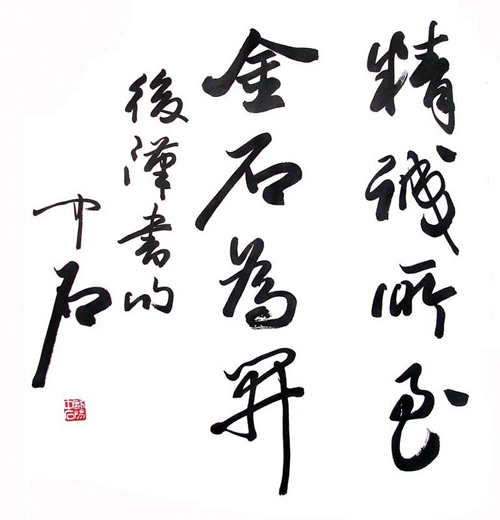 精誠所至
金石為開
後漢書
中石